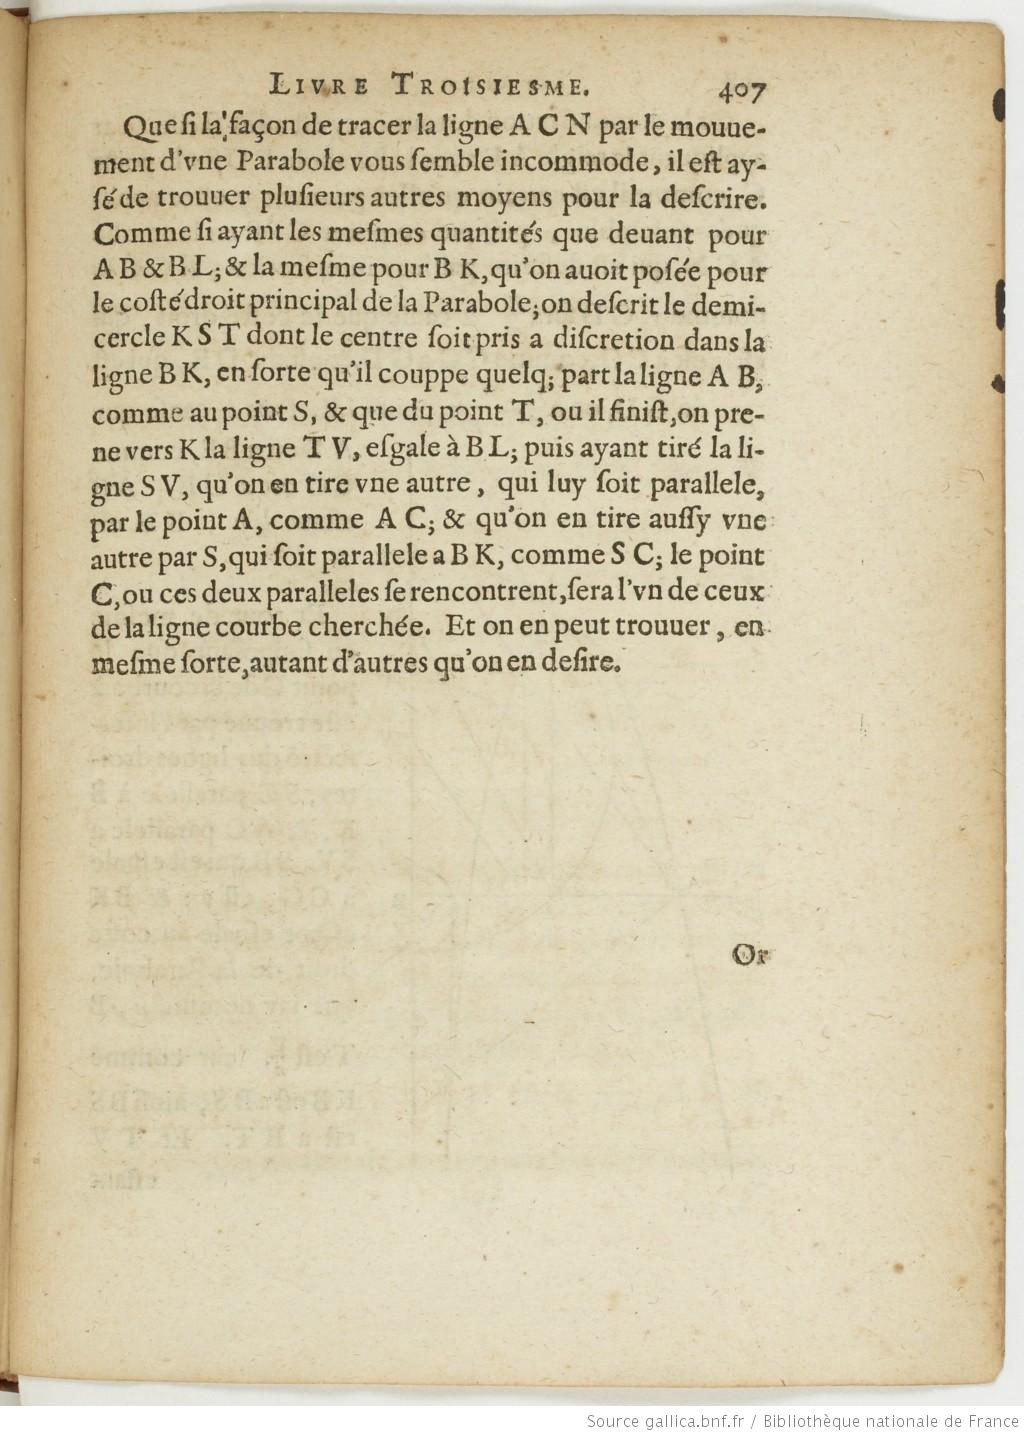 LIVRE TROISIESME. 407
Que si la façon de tracer la ligne A C N par le mouue-
ment d'vne Parabole vous semble incommode, il est ay-
sé de trouuer plusieurs autres moyens pour la descrire.
Comme si ayant les mesmes quantités que deuant pour
A B & B L; & la mesme pour B K, qu'on auoit posée pour
le costé droit principal de la Parabole; on descrit le demi-
cercle K S T dont le centre soit pris a discretion dans la
ligne B K, en sorte qu'il couppe quelq; part la ligne A B,
comme au point S, & que du point T, ou il finist, on pre-
ne vers K la ligne T V, esgale à B L; puis ayant tiré la li-
gne S V, qu'on en tire vne autre, qui luy soit parallele,
par le point A, comme A C; & qu'on en tire aussy vne
autre par S, qui soit parallele a B K, comme S C; le point
C, ou ces deux paralleles se rencontrent, sera l'vn de ceux
de la ligne courbe cherchée. Et on en peut trouuer, en
mesme sorte, autant d'autres qu'on en desire.
Or
Source gallica.bnf.fr / Bibliothèque nationale de France